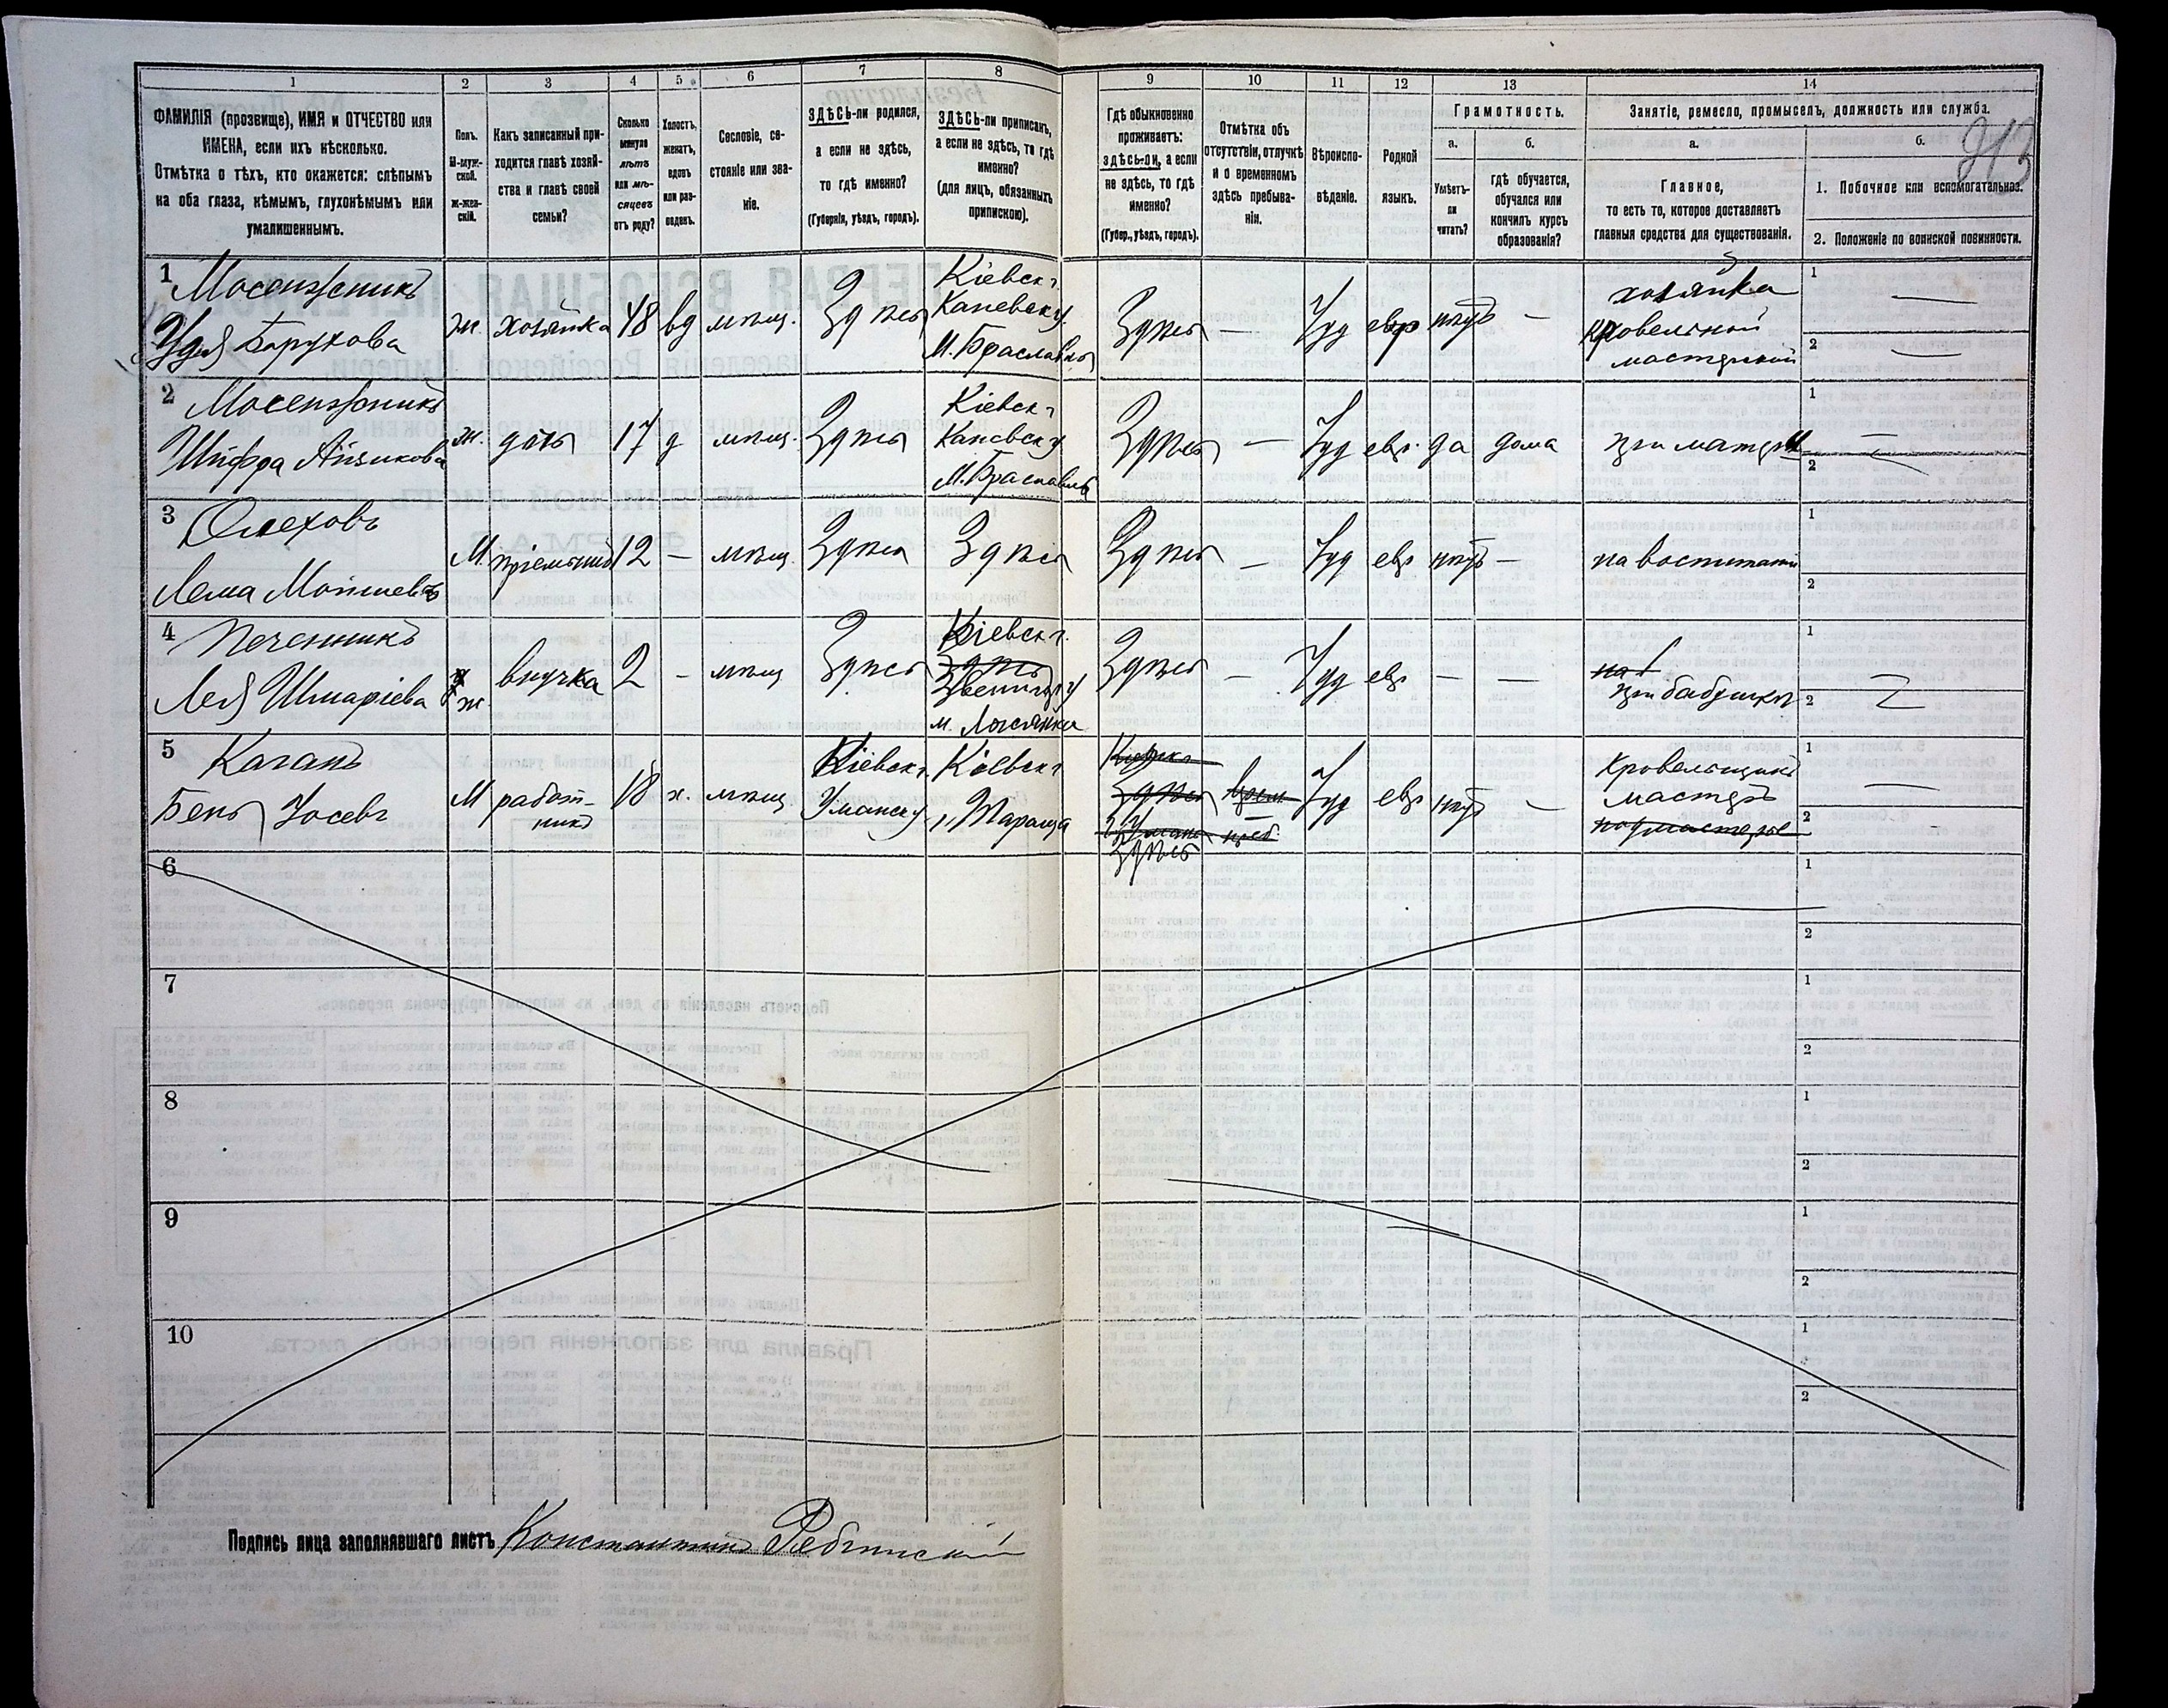 1 2 3 4 5 6 7 8 9 10 11 12 13 14
ФАМИЛІЯ (прозвище), ИМЯ и ОТЧЕСТВО или
ИМЕНА, если ихъ нѣсколько.
Отмѣтка о тѣхъ, кто окажется: слѣпымъ
на оба глаза, нѣмымъ, глухонѣмымъ или
умалишеннымъ.
Полъ.
М-муж-
ской.
Ж-жен-
скій.
Какъ записанный при-
ходится главѣ хозяй-
ства и главѣ своей
семьи?
Сколько
минуло
лѣтъ
или мѣ-
сяцевъ
отъ роду?
Холостъ,
женатъ,
вдовъ
или раз-
веденъ.
Сословіе, со-
стояніе или зва-
ніе.
ЗДѢСЬ-ли родился,
а если не здѣсь,
то гдѣ именно?
(Губернія, уѣздъ, городъ).
ЗДѢСЬ-ли приписанъ,
а если не здѣсь, то гдѣ
именно?
(для лицъ, обязанныхъ
припискою).
Гдѣ обыкновенно
проживаетъ:
здѣсь-ли, а если
не здѣсь, то гдѣ
именно?
(Губер., уѣздъ, городъ).
Отмѣтка объ
отсутствіи, отлучкѣ
и о временномъ
здѣсь пребыва-
ніи.
Вѣроиспо-
вѣданіе.
Родной
языкъ.
Грамотность.
а.
Умѣетъ-
ли
читать?
б.
гдѣ обучается,
обучался или
кончилъ курсъ
образованія?
Занятіе, ремесло, промыселъ, должность или служба.
а.
Главное,
то есть то, которое доставляетъ
главныя средства для существованія.
б.
1. Побочное или вспомогательное.
2. Положеніе по воинской повинности.
313
1
Мосенжникъ
Удя Барухова
ж.
хозяйка
48
вд
мѣщ.
Здѣсь
Кіевск г.
Каневск у.
М. Браславль
Здѣсь
—
Іуд
евр
нѣтъ
—
хозяйка
кровельной
мастерской
1 —
2 —
2
Мосенжникъ
Шифра Айзикова
ж.
дочь
17
д
мѣщ.
Здѣсь
Кіевск г
Каневск у
М. Браславль
Здѣсь
—
Іуд
евр.
да
дома
при матери
1 —
2 —
3
Олеховъ
Лема Мошневъ
М.
пріемышъ
12
—
мѣщ
Здѣсь
Здѣсь
Здѣсь
—
Іуд
евр
нѣтъ
—
на воспитаніи
1
2
4
Печенникъ
Лея Шмаріева
ж.
внучка
2
-
мѣщ
Здѣсь
Кіевск г.
Здѣсь
Звенигор у
м. Лысянка
Здѣсь
—
Іуд
евр
—
—
при бабушкѣ
1 —
2
5
Каганъ
Бень Іосевъ
М
работ-
никъ
18
х.
мѣщ.
Кіевск г.
Уманск у.
Кіевск г
г. Тараща
Кіевск г
Здѣсь
г. Умань
Здѣсь
врем
преб.
Іуд
евр
нѣтъ
—
Кровельщикъ
мастеръ
подмастерье
1 —
2 -
6
1
2
7
1
2
8
1
2
9
1
2
10
1
2
Подпись лица заполнявшаго листъ Константинъ